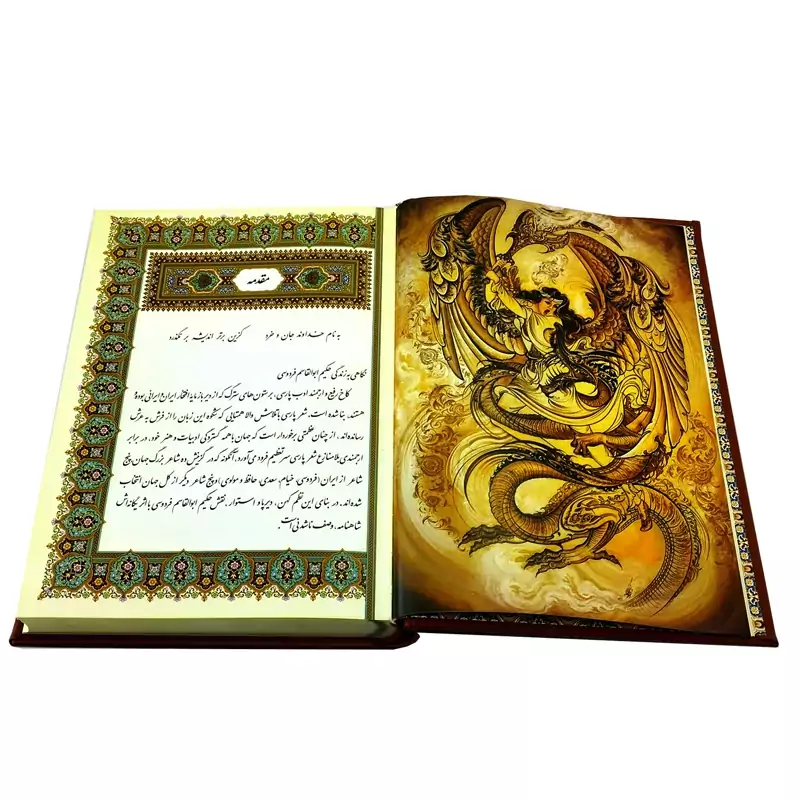 مقدمه
به نام خداوند جان و خرد کزین برتر اندیشه بر نگذرد
نگاهی به زندگی حکیم ابوالقاسم فردوسی
کاخ رفیع و ارجمند ادب پارسی، بر ستون های سترگ که از دیر باز مایه افتخار ایران و ایرانی بوده
هستند، بنا شده است. شعر پارسی با تلاش والا همتایی که شکوه این زبان را از فرش به عرش
رسانده اند، از چنان عظمتی برخوردار است که جهان با همه گستردگی ادبیات و هنر خود، در برابر
ارجمندی بلامنازع شعر پارسی سر تعظیم فرود می آورد. آنگونه که در گزینش ده شاعر بزرگ جهان پنج
شاعر از ایران (فردوسی، خیام، سعدی حافظ و مولوی) و پنج شاعر دیگر از کل جهان انتخاب
شده اند. در بنای این نظم کهن، دیرپا و استوار، نقش حکیم ابوالقاسم فردوسی با اثر یگانه اش
شاهنامه، وصف ناشدنی است.